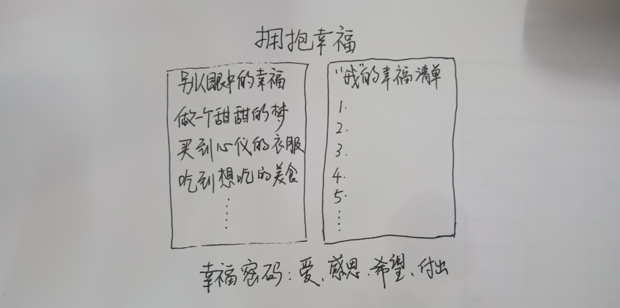 拥抱幸福
别人眼中的幸福
做一个甜甜的梦
买到心仪的衣服
吃到想吃的美食
……
“我”的幸福清单
1.
2.
3.
4.
5.
……
幸福密码：爱、感恩、希望、付出